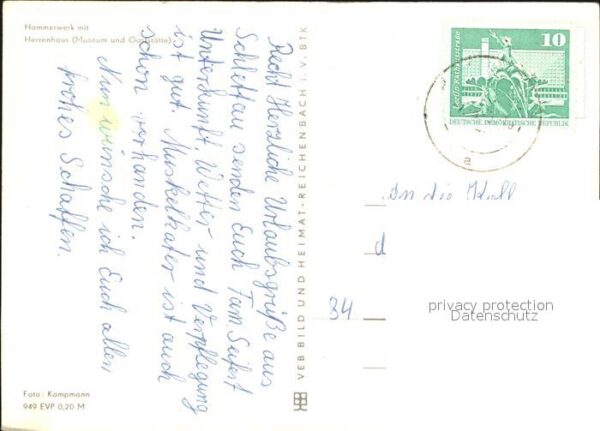 Hammerwerk mit
Herrenhaus (Museum und Gaststätte)
Recht Herzliche Urlaubsgrüße aus
Schlettau senden Euch Fam. Seifert
Unterkunft Wetter und Verpflegung
ist gut. Muskelkater ist auch
schon vorhanden.
Nun wünsche ich Euch allen
frohes Schaffen.
Foto: Kampmann
949 EVP 0,20 M
VEB BILD UND HEIMAT-REICHENBACH i. V. BTK
10
Berlin, Rathausstraße
DEUTSCHE DEMOKRATISCHE REPUBLIK
An die Koll
d
84
privacy protection
Datenschutz